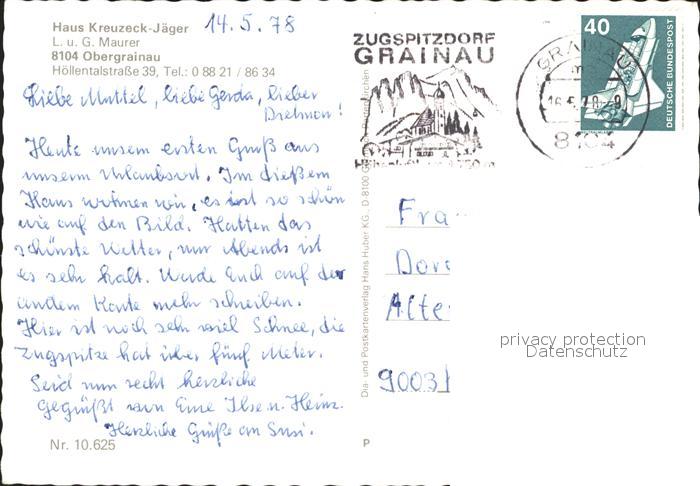 Haus Kreuzeck-Jäger 14.5.78
L. u. G. Maurer
8104 Obergrainau
Höllentalstraße 39, Tel.: 0 88 21 / 86 34
Liebe Muttel, liebe Gerda, lieber
Dietmar!
Heute unsern ersten Gruß aus
unserm Urlaubsort. Im dießem
Haus wohnen wir, es ist so schön
wie auf den Bild. Hatten das
schönste Wetter, nur Abends ist
es sehr kalt. Werde Euch auf der
andern Karte mehr schreiben.
Hier ist noch sehr viel Schnee, die
Zugspitze hat über fünf Meter.
Seid nun recht herzliche
gegrüßt von Eure Ilse u. Heinz.
Herzliche Grüße an Susi.
Nr. 10.625
ZUGSPITZDORF
GRAINAU
GRAINAU
16.5.78-9
8104
40
DEUTSCHE BUNDESPOST
Dia- und Postkartenverlag Hans Huber KG., D-8100
P
Fra
Dor
Alte
9003
privacy protection
Datenschutz